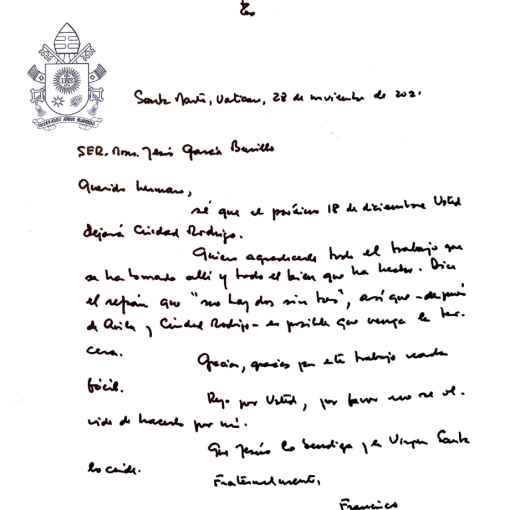 Santa Marta, Vaticano, 28 de noviembre de 2021
SER. Mons. Jesús García Burillo
Querido hermano,
sé que el próximo 18 de diciembre Usted
dejará Ciudad Rodrigo.
Quiero agradecerle todo el trabajo que
se ha tomado allí y todo el bien que ha hecho. Dice
el refrán que "no hay dos sin tres", así que - después
de Avila y Ciudad Rodrigo - es posible que venga la ter-
cera.
Gracias, gracias por este trabajo nada
fácil.
Rezo por Usted, por favor no se ol-
vide de hacerlo por mí.
Que Jesús lo bendiga y la Virgen Santa
lo cuide.
Fraternalmente,
Francisco